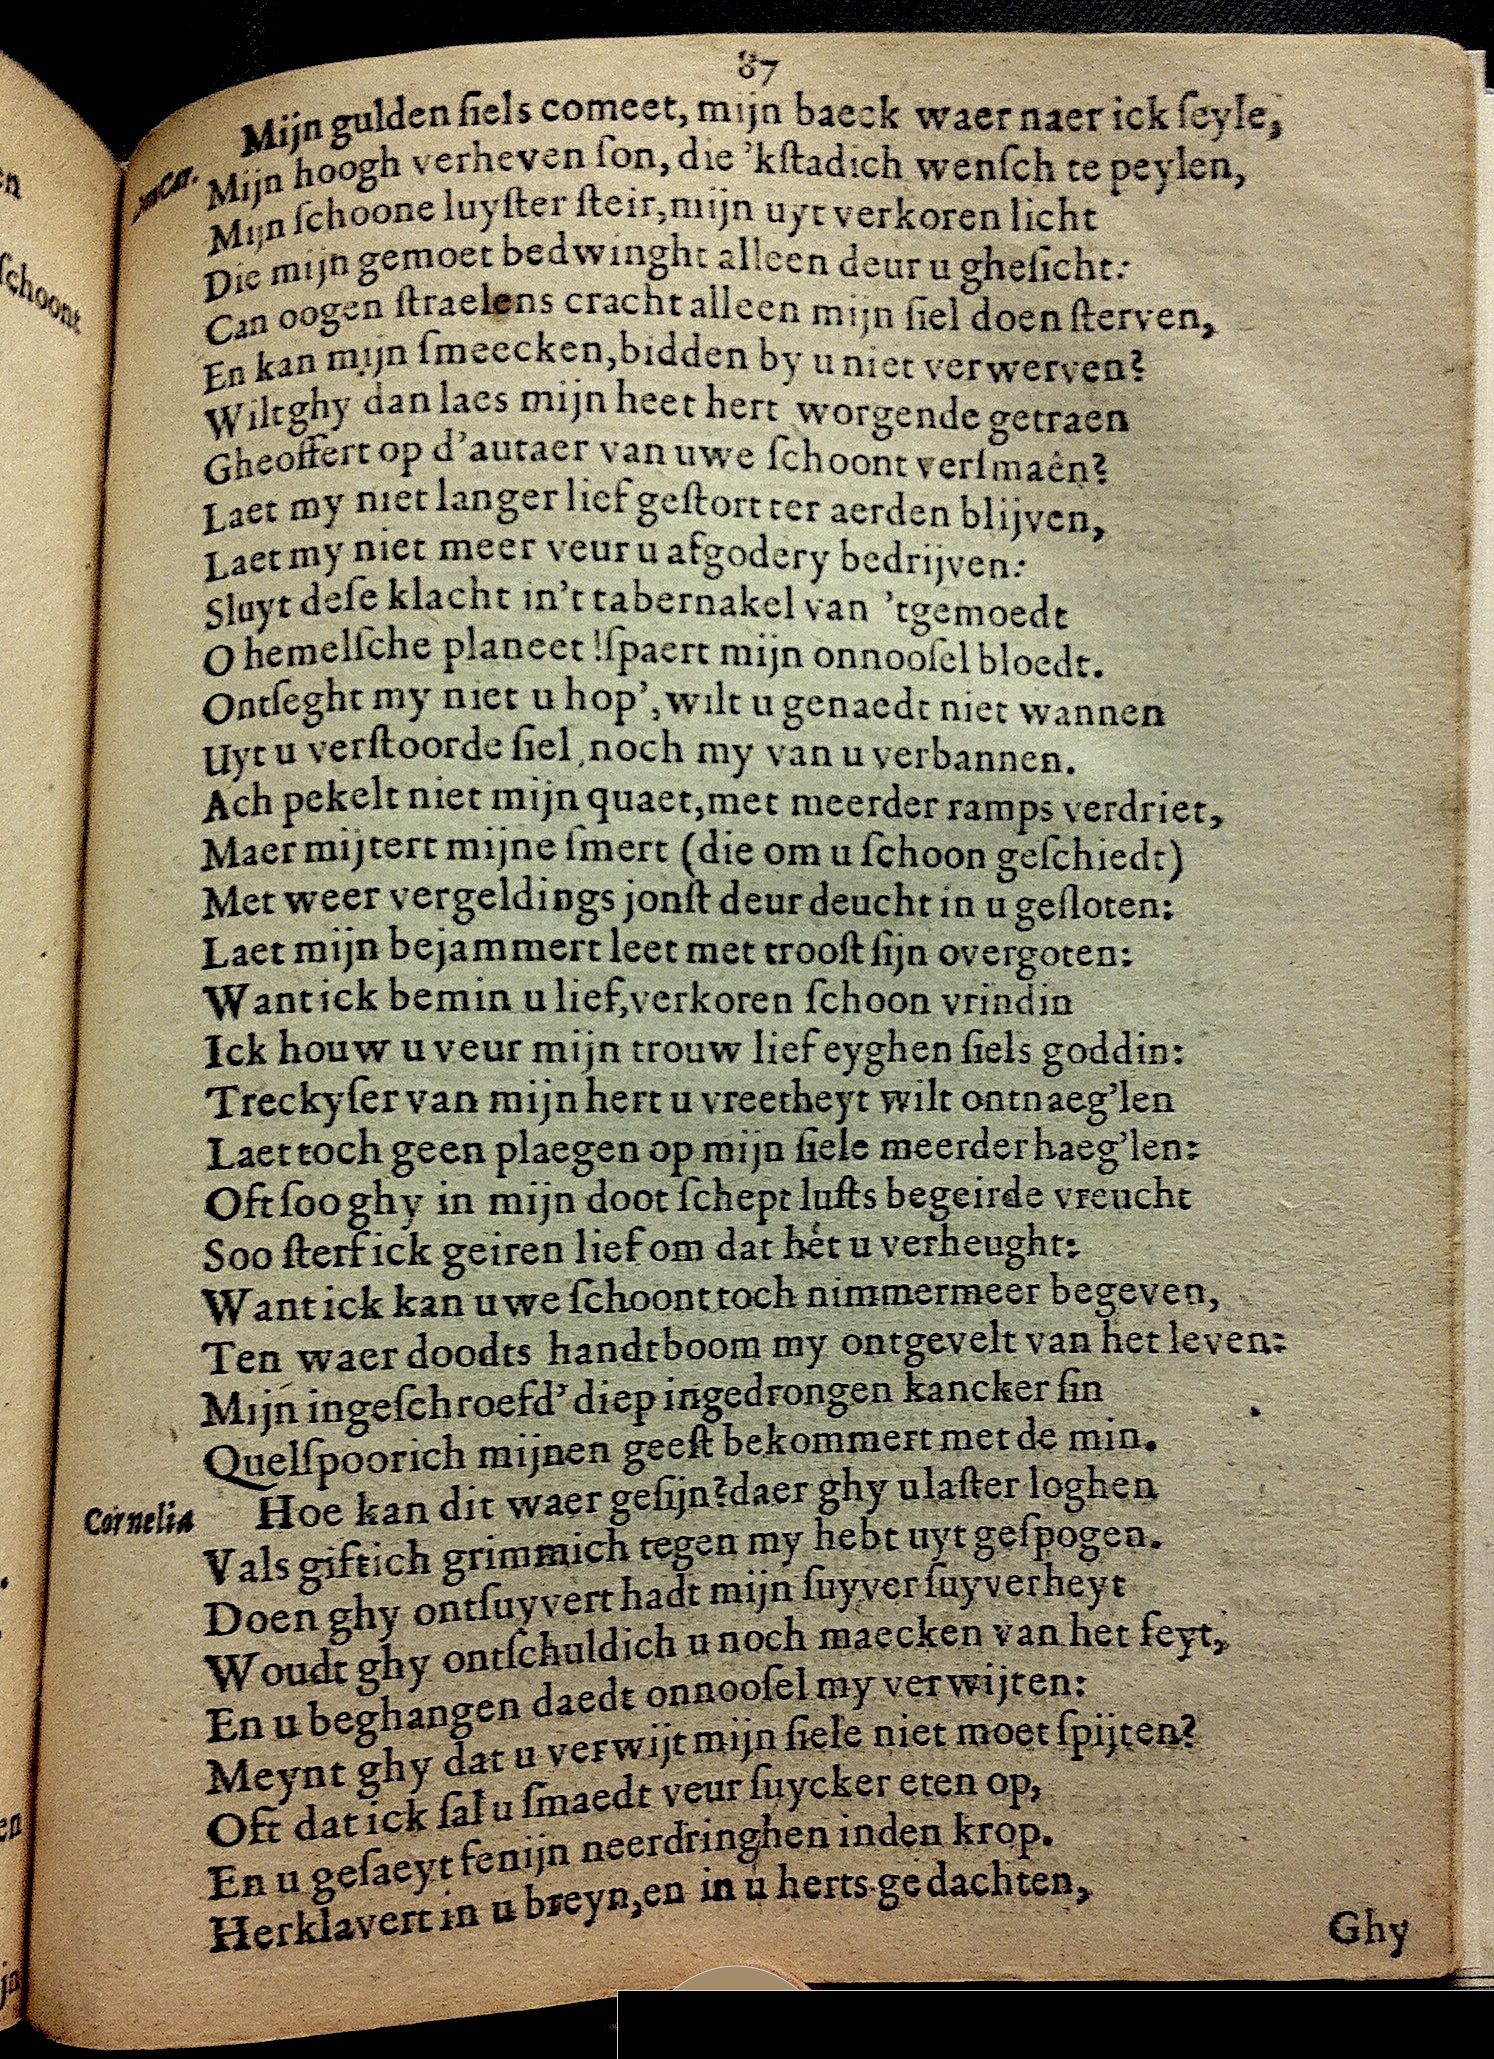 87
Mijn gulden ſiels comeet, mijn baeck waer naer ick ſeyle,
Mijn hoogh verheven ſon, die 'kſtadich wenſch te peylen,
Mijn ſchoone luyſter ſteir, mijn uyt verkoren licht
Die mijn gemoet bedwinght alleen deur u gheſicht:
Can oogen ſtraelens cracht alleen mijn ſiel doen ſterven,
En kan mijn ſmeecken, bidden by u niet verwerven?
Wilt ghy dan laes mijn heet hert worgende getraen
Gheoffert op d'autaer van uwe ſchoont verſmaên?
Laet my niet langer lief geſtort ter aerden blijven,
Laet my niet meer veur u afgodery bedrijven:
Sluyt deſe klacht in't tabernakel van 'tgemoedt
O hemelſche planeet! ſpaert mijn onnooſel bloedt.
Ontſeght my niet u hop', wilt u genaedt niet wannen
Uyt u verſtoorde ſiel, noch my van u verbannen.
Ach pekelt niet mijn quaet, met meerder ramps verdriet,
Maer mijtert mijne ſmert (die om u ſchoon geſchiedt)
Met weer vergeldings jonſt deur deucht in u geſloten:
Laet mijn bejammert leet met trooſt ſijn overgoten:
Want ick bemin u lief, verkoren ſchoon vrindin
Ick houw u veur mijn trouw lief eyghen ſiels goddin:
Treckyſer van mijn hert u vreetheyt wilt ontnaeg'len
Laet toch geen plaegen op mijn ſiele meerder haeg'len:
Oft ſoo ghy in mijn doot ſchept luſts begeirde vreucht
Soo ſterf ick geiren lief om dat hét u verheught:
Want ick kan uwe ſchoont toch nimmermeer begeven,
Ten waer doodts handtboom my ontgevelt van het leven:
Mijn ingeſchroefd' diep ingedrongen kancker ſin
Quelſpoorich mijnen geeſt bekommert met de min.
Cornelia Hoe kan dit waer geſijn? daer ghy u laſter loghen
Vals giftich grimmich tegen my hebt uyt geſpogen.
Doen ghy ontſuyvert hadt mijn ſuyver ſuyverheyt
Woudt ghy ontſchuldich u noch maecken van het feyt,
En u beghangen daedt onnooſel my verwijten:
Meynt ghy dat u verwijt mijn ſiele niet moet ſpijten?
Oft dat ick ſal u ſmaedt veur ſuycker eten op,
En u geſaeyt fenijn neerdringhen inden krop.
Herklavert in u breyn, en in u herts gedachten,
Ghy
ſchoont